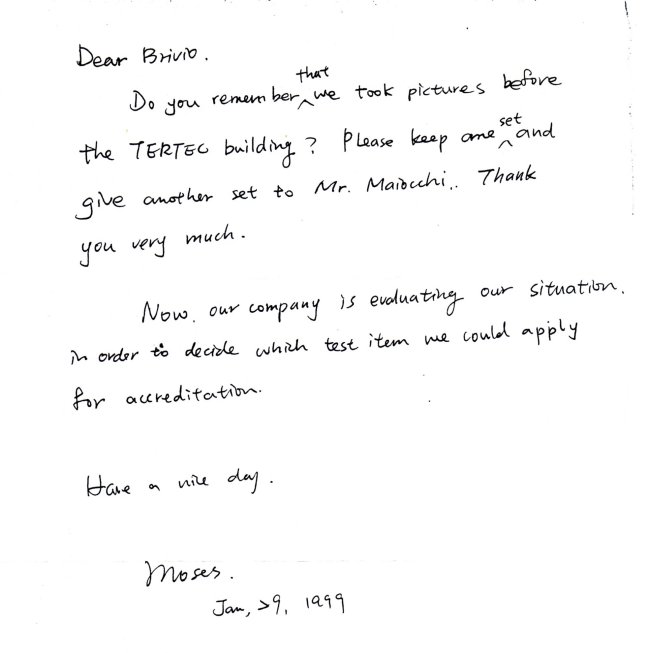 Dear Brivio.
Do you remember that we took pictures before
the TERTEC building? Please keep one set and
give another set to Mr. Maiocchi. Thank
you very much.
Now, our company is evaluating our situation.
in order to decide which test item we could apply
for accreditation.
Have a nice day.
Moses.
Jan, 29, 1999